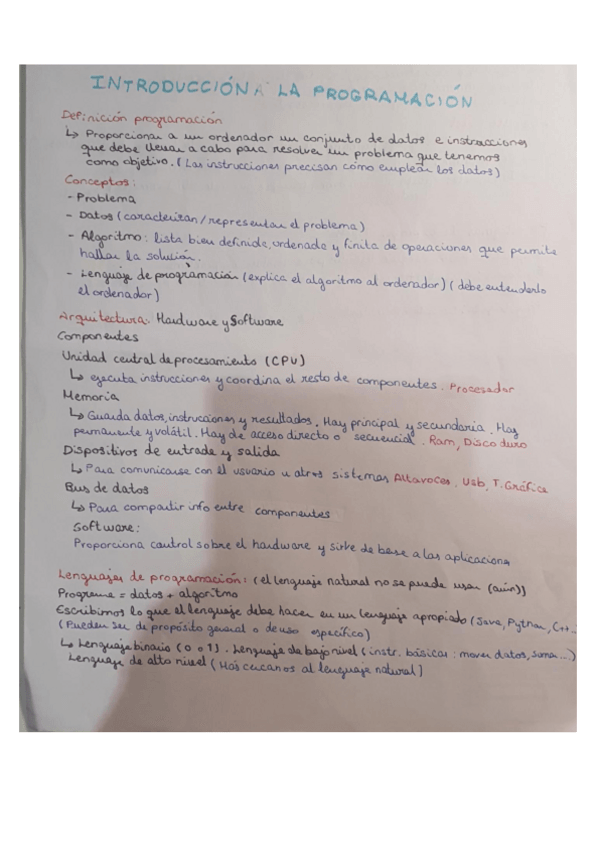 INTRODUCCIÓN A LA PROGRAMACIÓN
Definición programación
↳ Proporcionar a un ordenador un conjunto de datos e instrucciones
que debe llevar a cabo para resolver un problema que tenemos
como objetivo. (Las instrucciones precisan cómo emplear los datos)
Conceptos:
- Problema
- Datos (caracterizan/representan el problema)
- Algoritmo: lista bien definida, ordenada y finita de operaciones que permite
hallar la solución.
- Lenguaje de programación (explica el algoritmo al ordenador) (debe entenderlo
el ordenador)
Arquitectura: Hardware y Software
Componentes
Unidad central de procesamiento (CPU)
↳ ejecuta instrucciones y coordina el resto de componentes. Procesador
Memoria
↳ Guarda datos, instrucciones y resultados. Hay principal y secundaria. Hay
permanente y volátil. Hay de acceso directo o secuencial. Ram, Disco duro
Dispositivos de entrada y salida
↳ Para comunicarse con el usuario u otros sistemas Altavoces, Usb, T. Gráfica
Bus de datos
↳ Para compartir info entre componentes
Software:
Proporciona control sobre el hardware y sirve de base a las aplicaciones
Lenguajes de programación: (el lenguaje natural no se puede usar (aún))
Programa = datos + algoritmo
Escribimos lo que el lenguaje debe hacer en un lenguaje apropiado (Java, Python, C++...
(Pueden ser de propósito general o de uso específico)
↳ Lenguaje binario (0 o 1). Lenguaje de bajo nivel (instr. básicas: mover datos, suma...)
Lenguaje de alto nivel (Más cercanos al lenguaje natural)